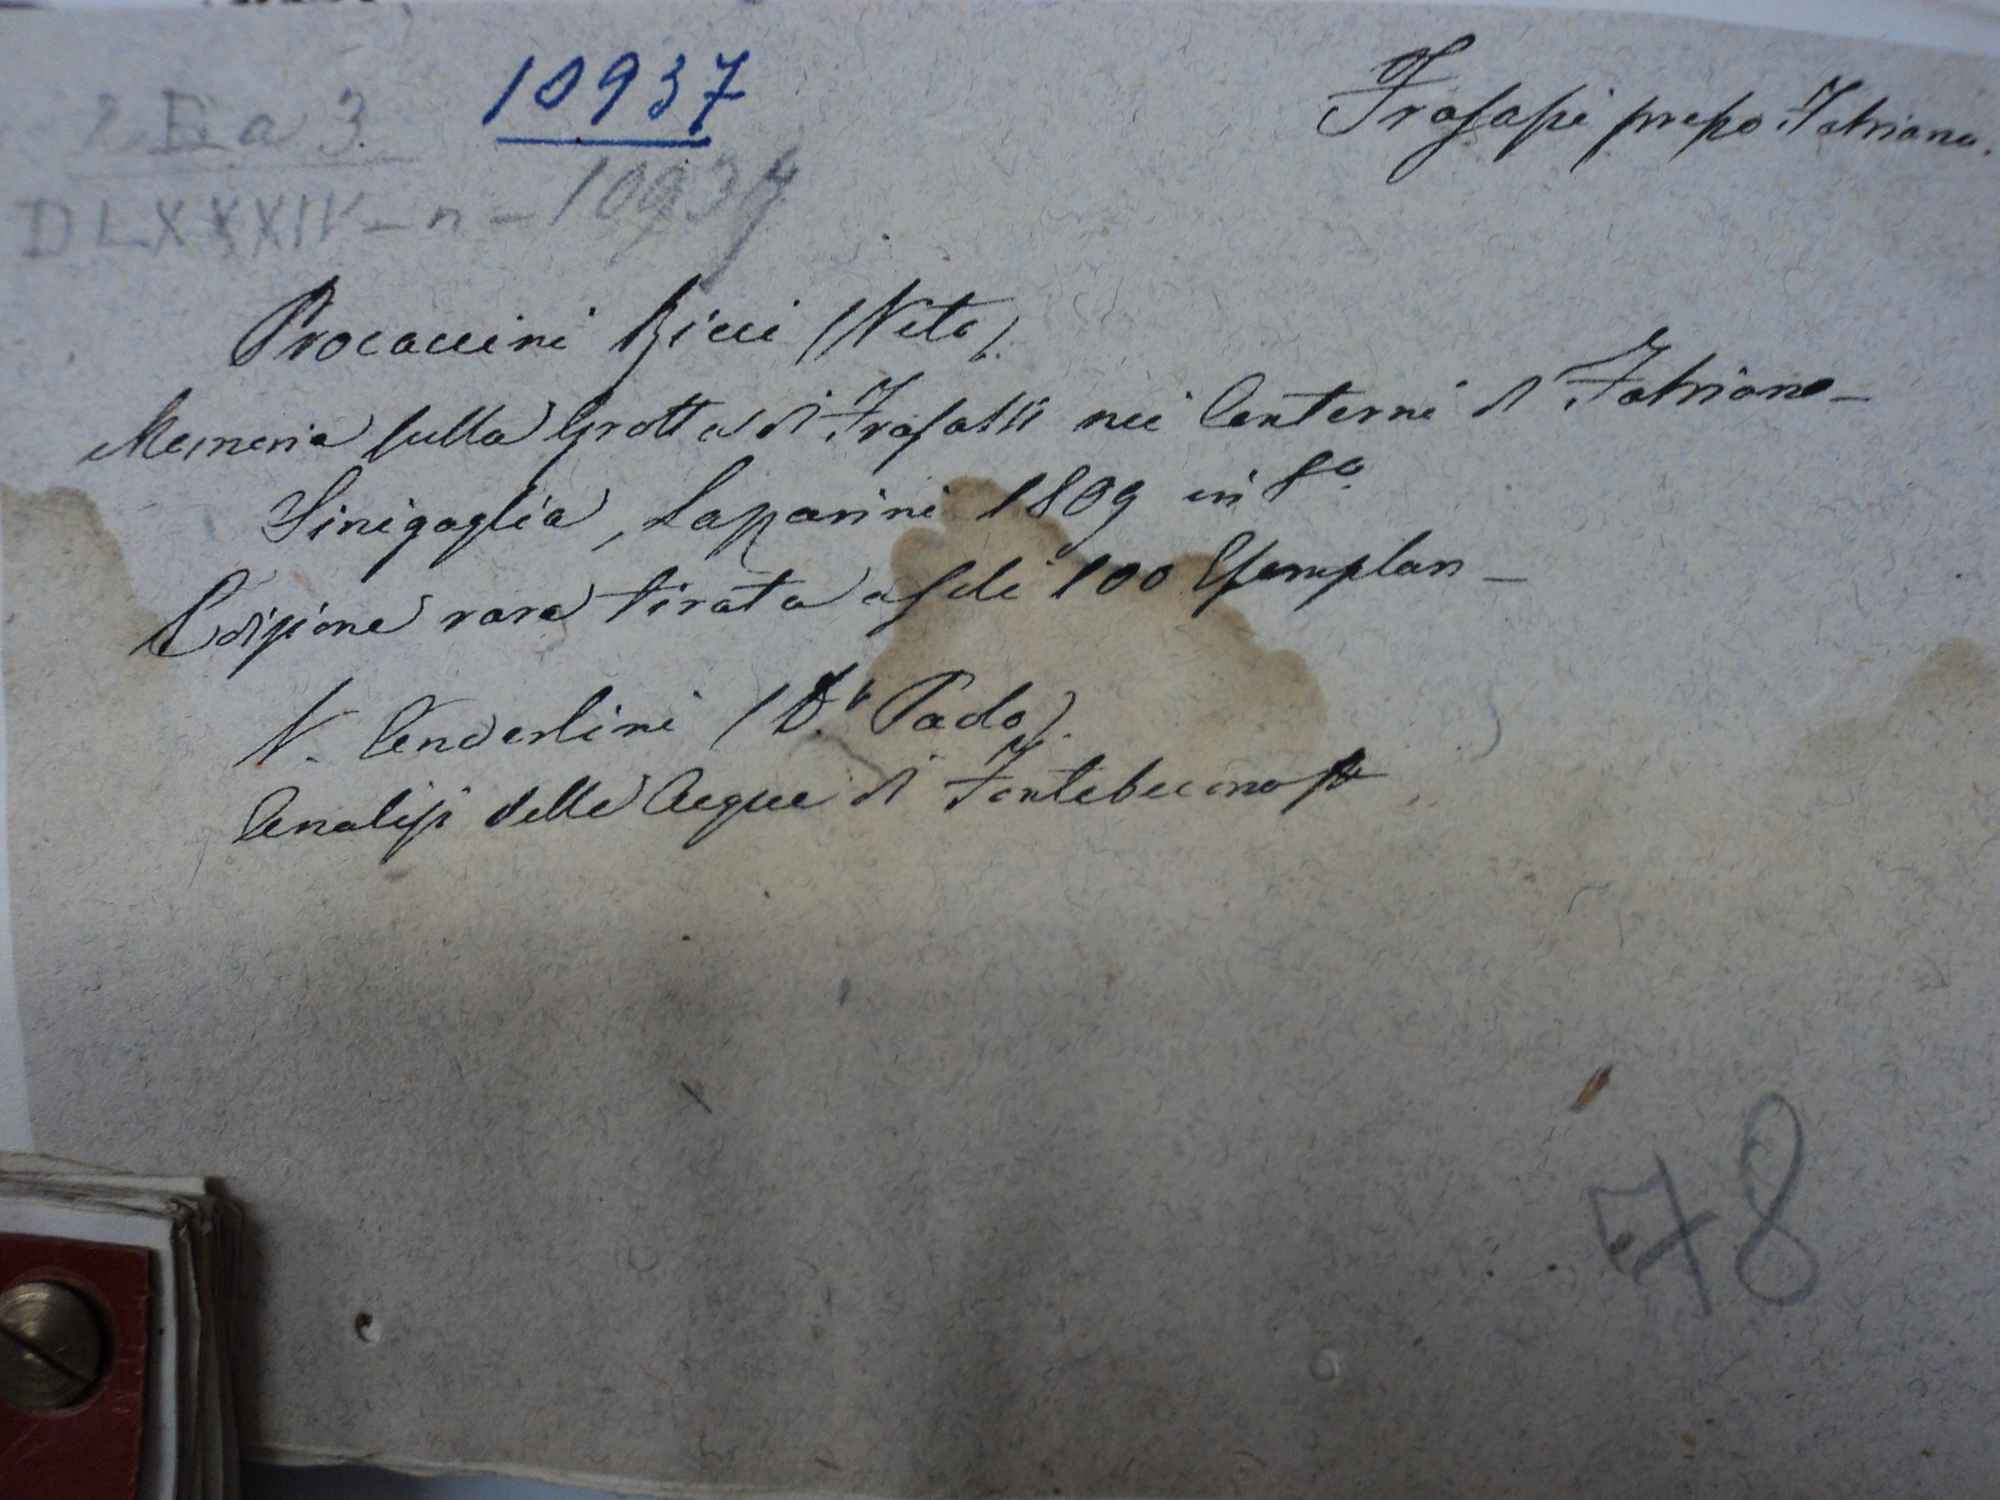 10937
Frasassi presso Fabriano.
2 E a 3
DLXXXIV - n - 10937
Procaccini Ricci (Vito).
Memoria sulla Grotta di Frasassi nei Conterni di Fabriano -
Sinigaglia, Lazzarini 1809 in 8º.
Edizione rara tirata a soli 100 Esemplari -
V. Canderlini (D.r Paolo).
Analisi delle Acque di Fontebuona
78